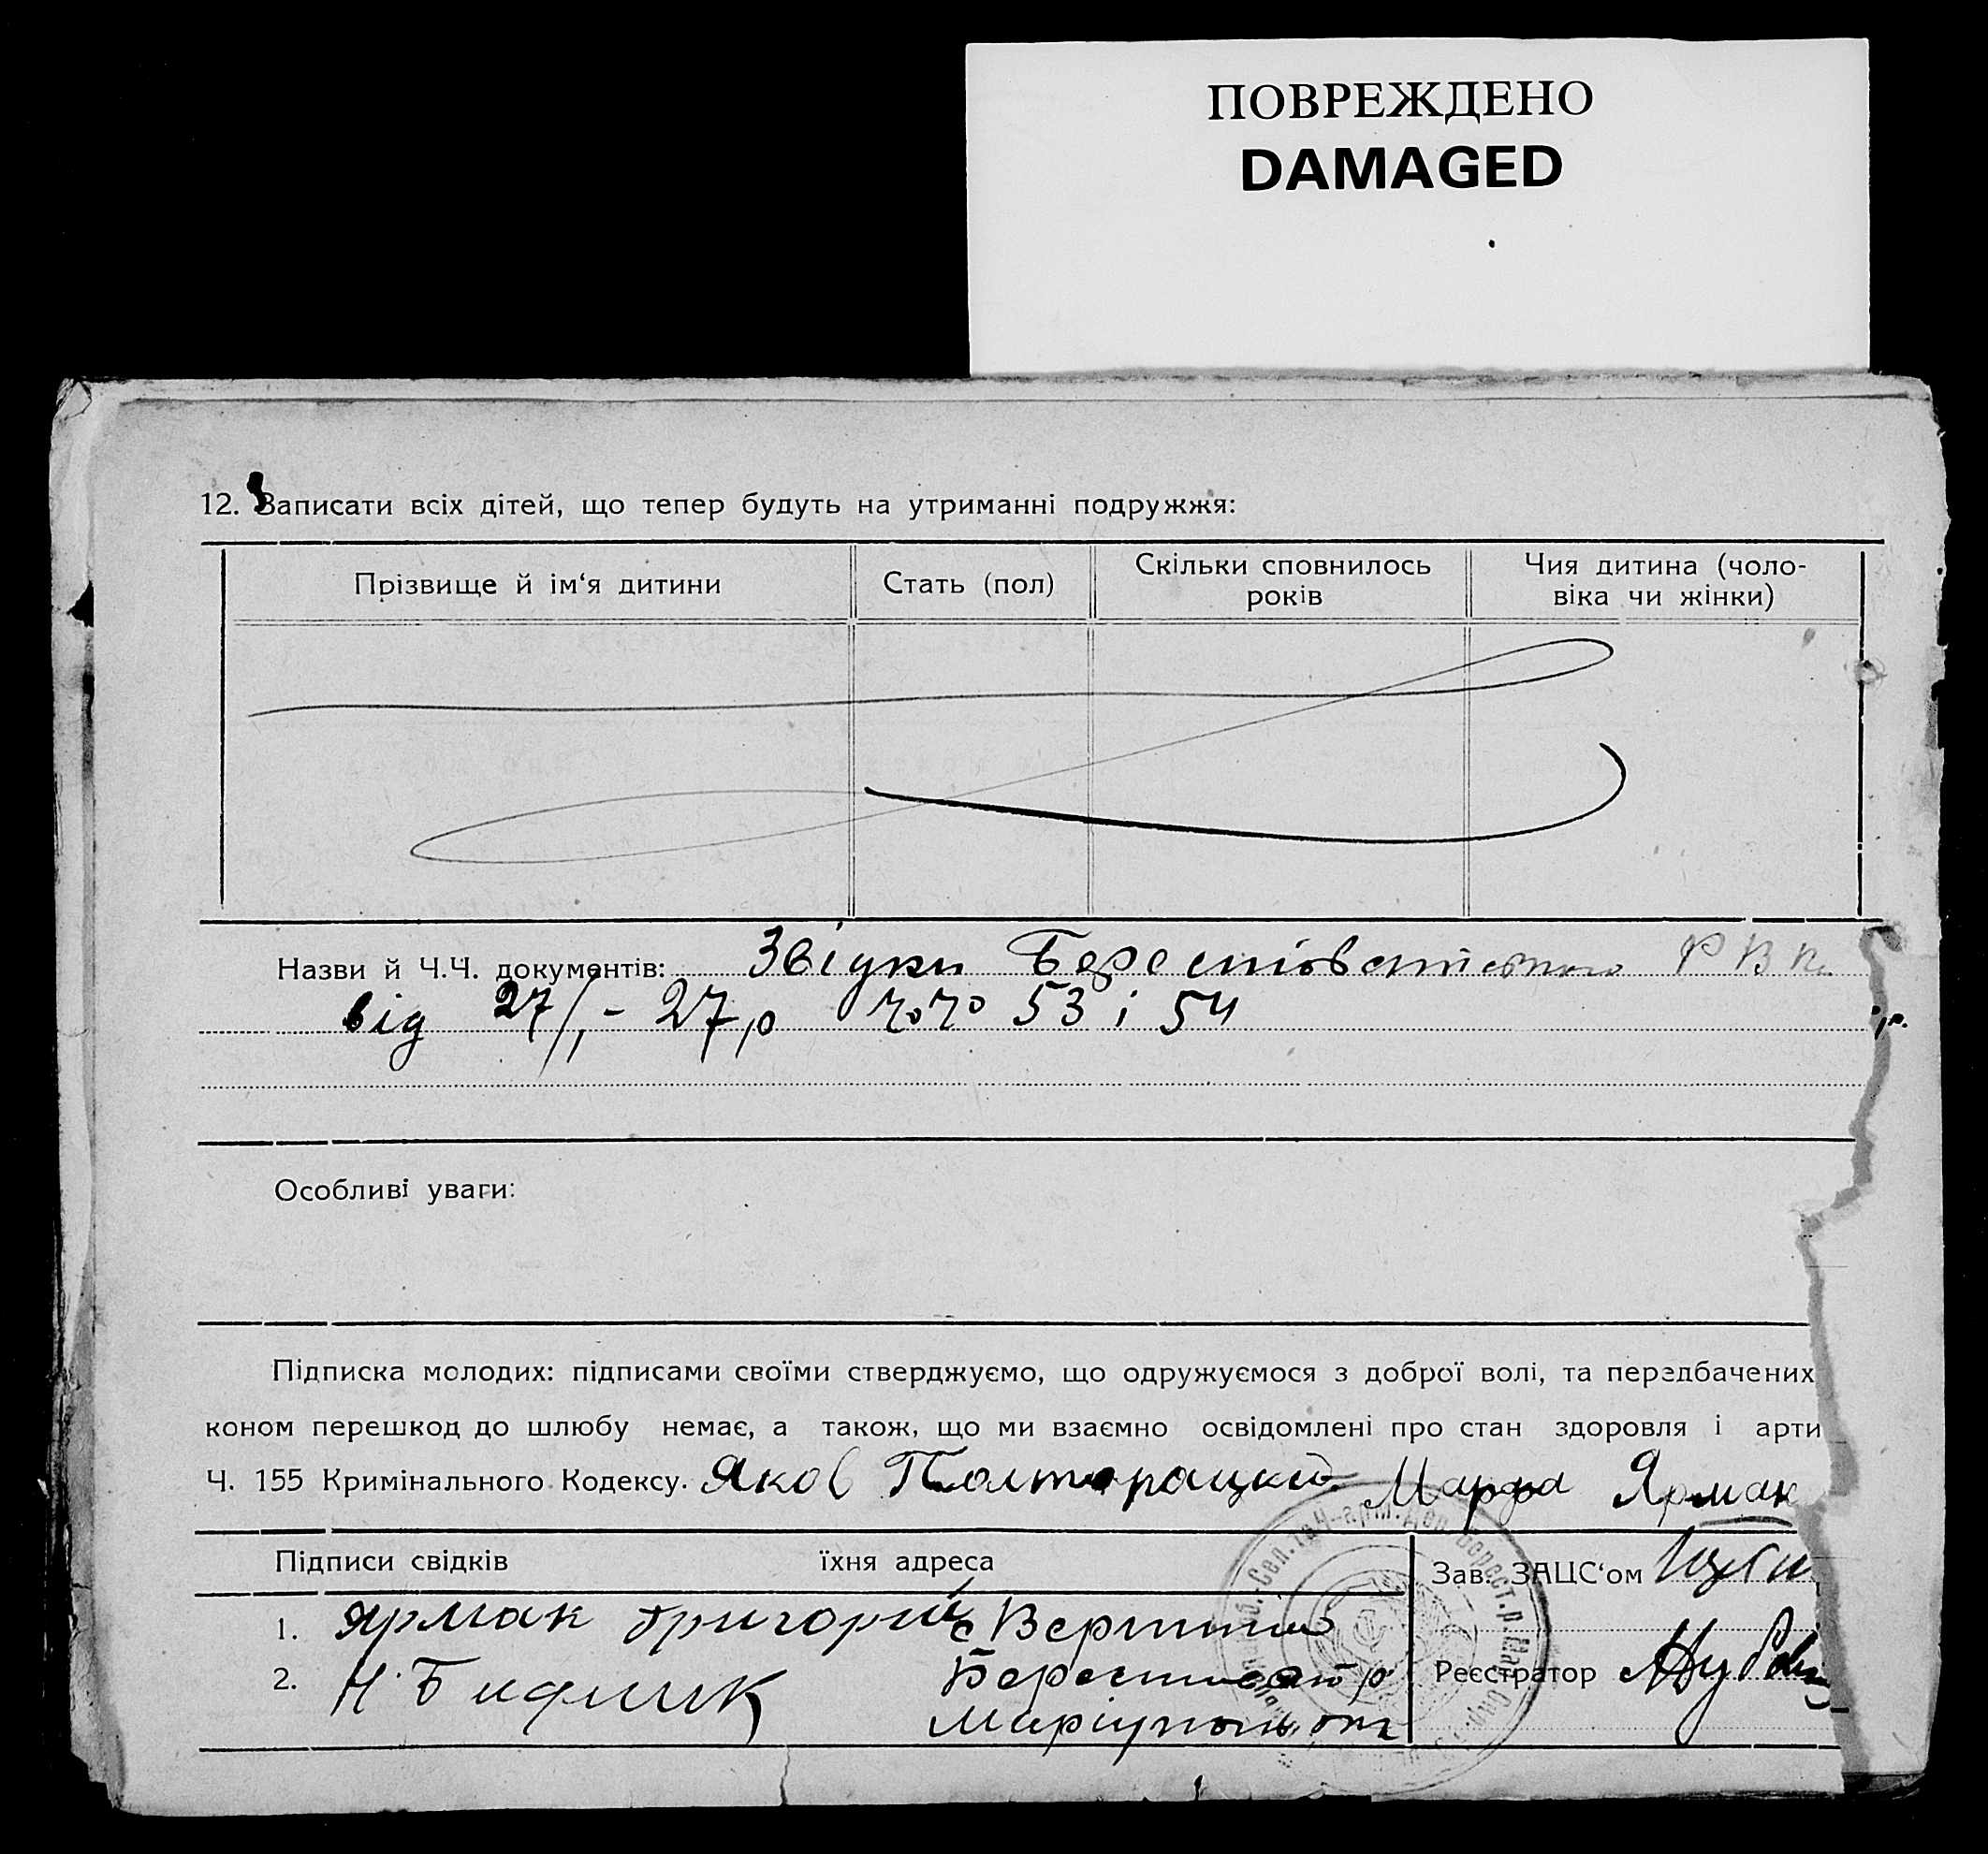 ПОВРЕЖДЕНО
DAMAGED
12. Записати всіх дітей, що тепер будуть на утриманні подружжя:
Прізвище й ім‘я дитини Стать (пол) Скільки сповнилось років Чия дитина (чоло-
віка чи жінки)
Назви й Ч.Ч. документів: Звідки РВК
від 27/1 - 27 р 53 і 54
Особливі уваги:
Підписка молодих: підписами своїми стверджуємо, що одружуємося з доброї волі, та передбачених
коном перешкод до шлюбу немає, а також, що ми взаємно освідомлені про стан здоровля і арти
Ч. 155 Кримінального Кодексу. Яков Полторацкий Марфа Ярмак
Підписи свідків їхня адреса Зав. ЗАЦС‘ом
1. Ярмак Григорий с
2. Н. Реєстратор